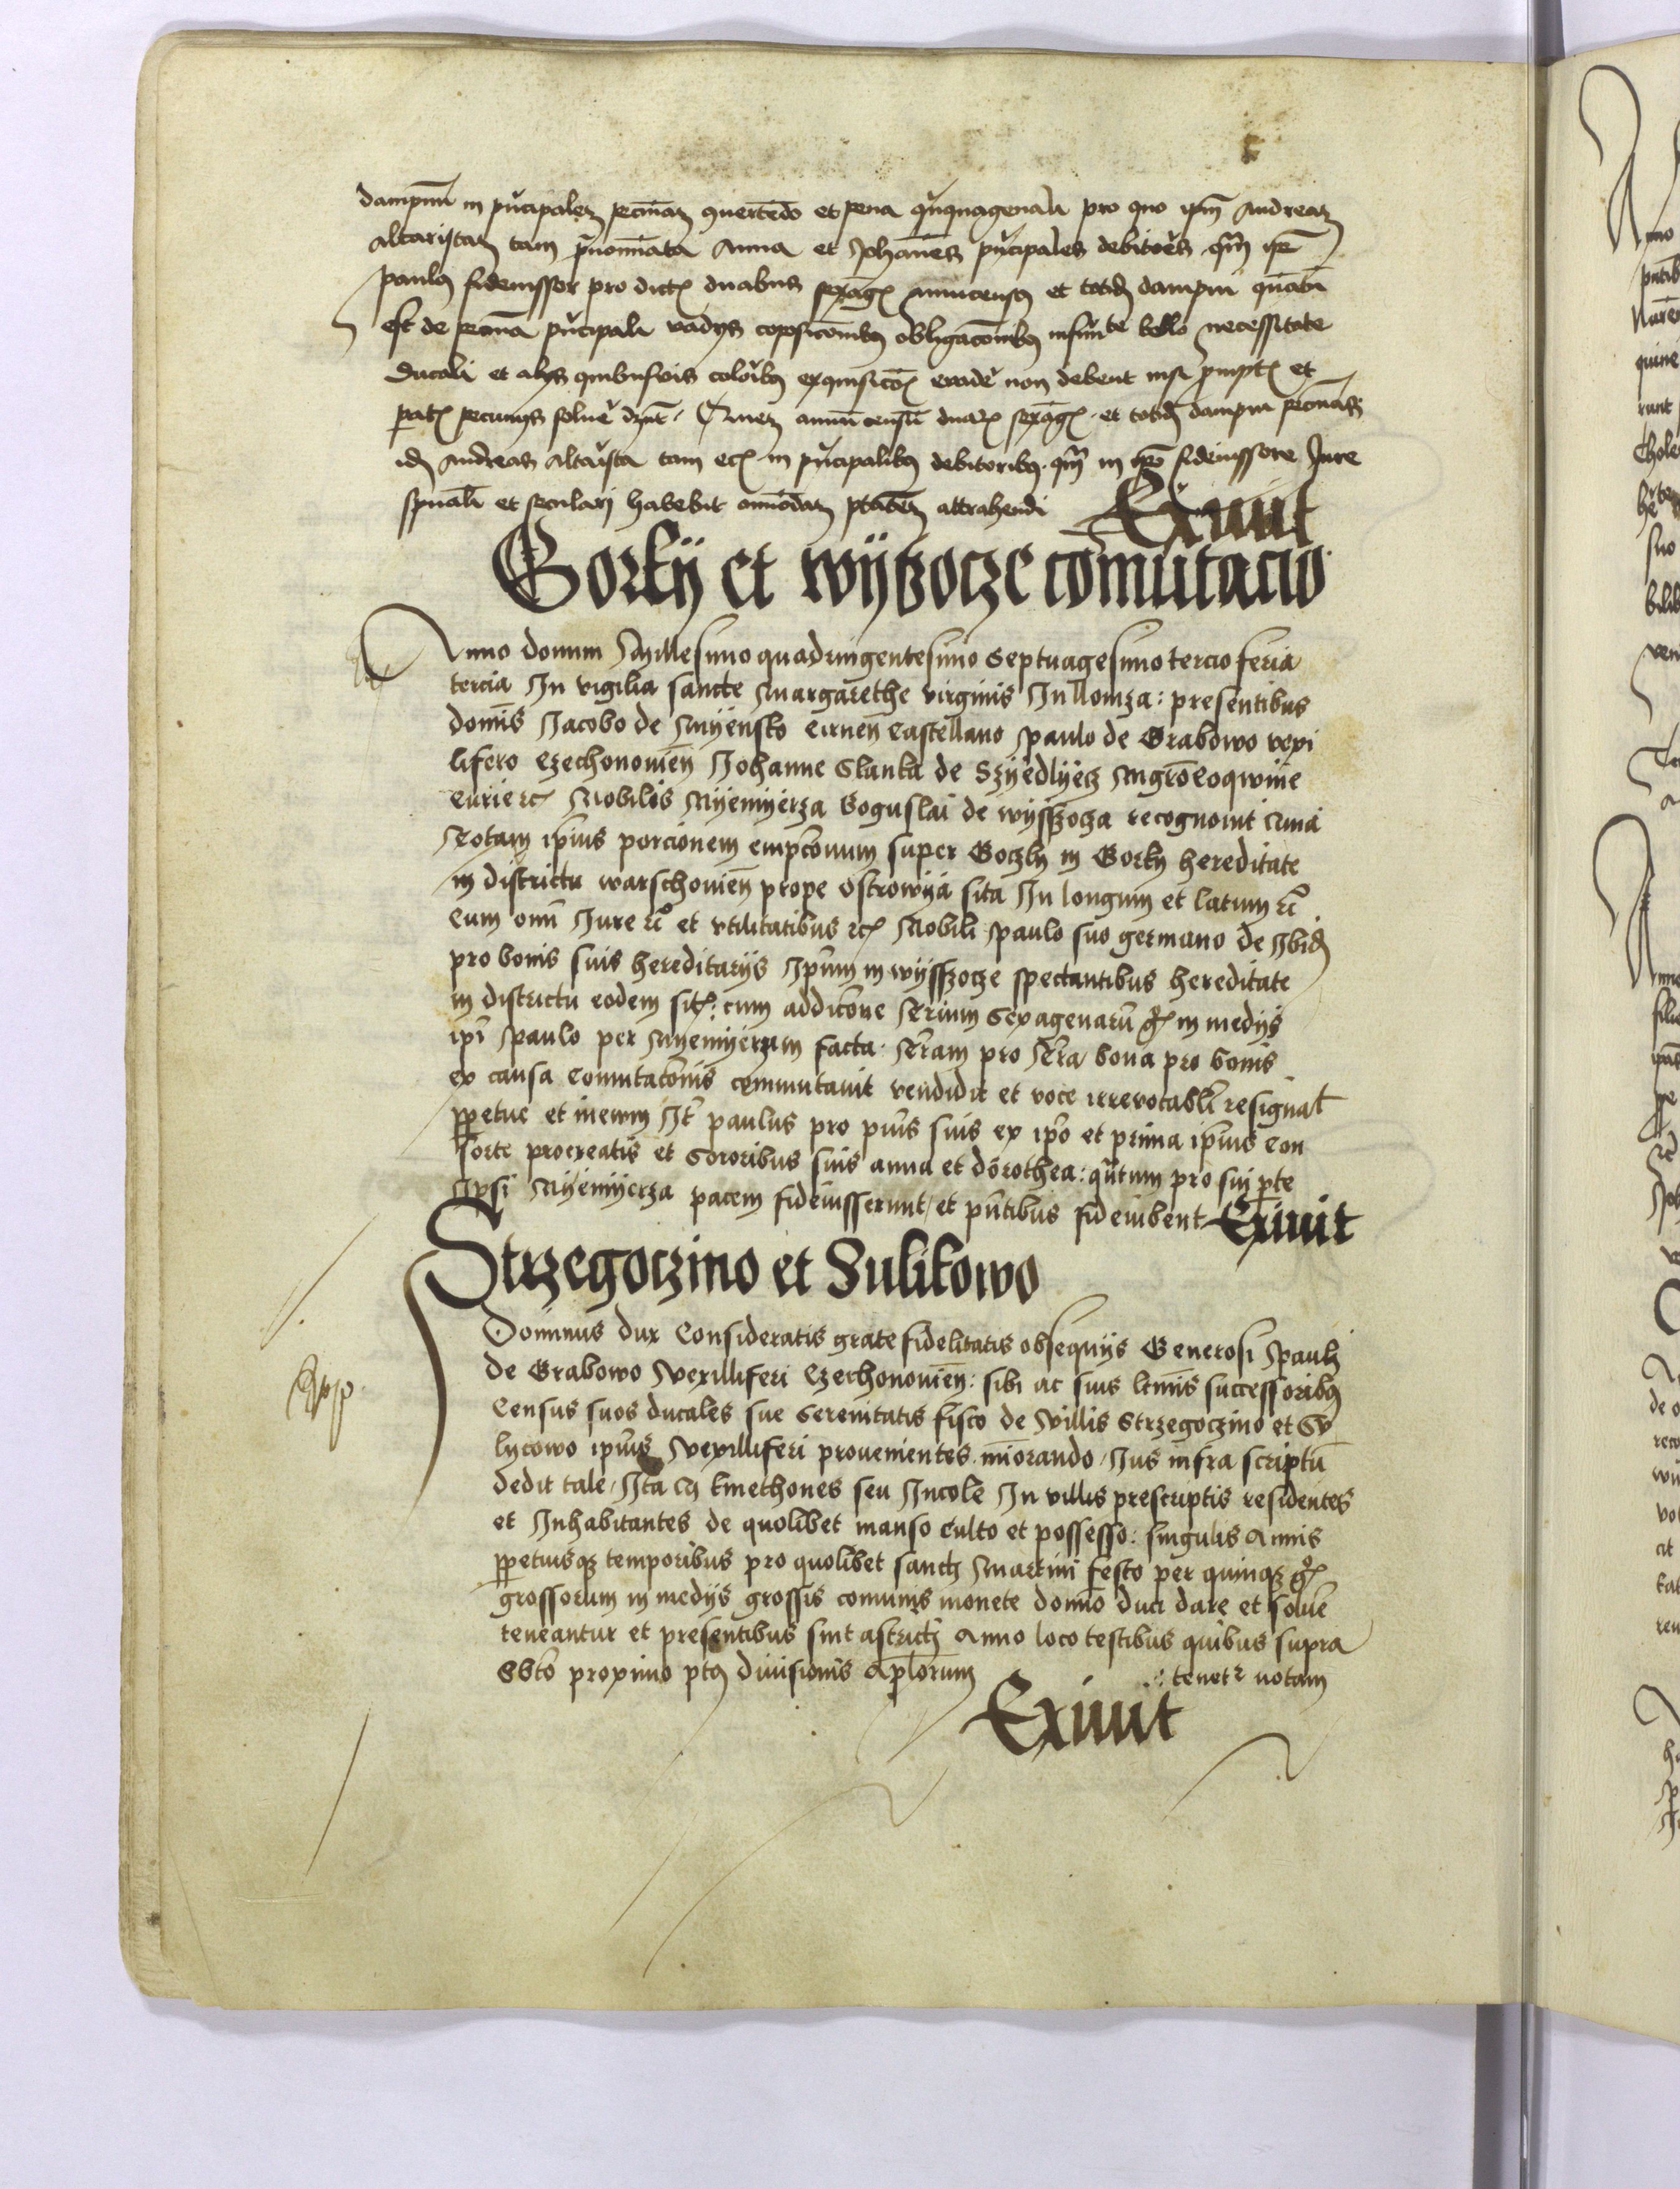 dampnũ in pncipalez pecniaz querẽdo et pena qnquagenali pro quo ipm Andreaz
altaristaz tam pnoĩnata Anna et Johañes pncipales debitores qm ipẽ
paulus fideiussor pro dictꝫ duabus sexagꝫ annuicensus et totid dampni
est de pecunia pncipali vadys coposicõnibꝫ obligacõnibꝫ bello necessitate
ducali et alys quibusuis coloribꝫ exquisicõꝫ euadẽ non debent nisi pmptꝫ et
patꝫ pecunys soluẽ Quez annuũ censũ duaꝝ sexagꝫ et totid dampni pecunias
id Andreas altarista tam ecꝫ in pncipalibꝫ debitoribꝫ qm in ipo fideiussore Jure
spũali et seculari habebit omĩodaz ptãtez attrahendi Exiuit
Gorky et wyssocze comutacio
Anno domini Millesimo quadringentesimo Septuagesimo tercio feria
tercia In vigilia sancte Margarethe virginis In llomza: presentibus
dominis Jacobo de Myensko Cirneñ Castellano Paulo de Grabowo vexi
lifero Czechonouieñ Johanne Slanka de Szyedlyecz Mgrõ Coqwine
Curie ⁊cꝫ Nobilis Nyemyerza Boguslai de wysszocza recognouit Quia
Totam ipius porcionem empcõnum super Goczly in Gorky hereditate
in districtu warschouieñ prope Ostrowya sita In longum et latum ⁊c̃
Cum omĩ Jure ⁊c̃ et vtilitatibus ⁊cꝫ Nobili Paulo suo germano de Jbid
pro bonis suis hereditarijs Jpnm in wysszocze spectantibus hereditate
in districtu eodem sitꝫ: cum addicõne Trium Sexagenarũ gꝫ in medijs
ipĩ Paulo per Nyemyerzam facta: Terram pro Terra bona pro bonis
ex causa Comutacõnis commutauit vendidit et voce irreuocabli resignat
ppetue et ineuum Jt paulus pro puis suis ex ipo et prima ipius Con
sorte procreatis et Sororibus suis anna et dorothea: qutum pro sui pte
Ipsi Nyemyerza pacem fideiusserunt et pntibus fideiubent Exiuit
Strzegoczino et Sulikowo
Dominus dux Consideratis grate fidelitatis obsequijs Generosi Pauli
de Grabowo Vexilliferi Czechonouieñ: sibi ac suis ltimis successoribꝫ
Census suos ducales sue Serenitatis fisco de Villis Strzegoczino et Sv
lycowo ipius Vexilliferi prouenientes mĩorando Jus infra scriptũ
dedit tale Jta kmethones seu Jncole In villis prescriptis residentes
et Inhabitantes de quolibet manso Culto et possesso: singulis Annis
ppetuisqꝫ temporibus pro quolibet sancti Martini festo per quinqꝫ gꝫ
grossorum in medijs grossis comunis monete domĩo duci dare et soluẽ
teneantur et presentibus sint astricti Anno loco testibus quibus supra
Sbto proximo Diuisionis Aplorum tenetr notam
Exiuit